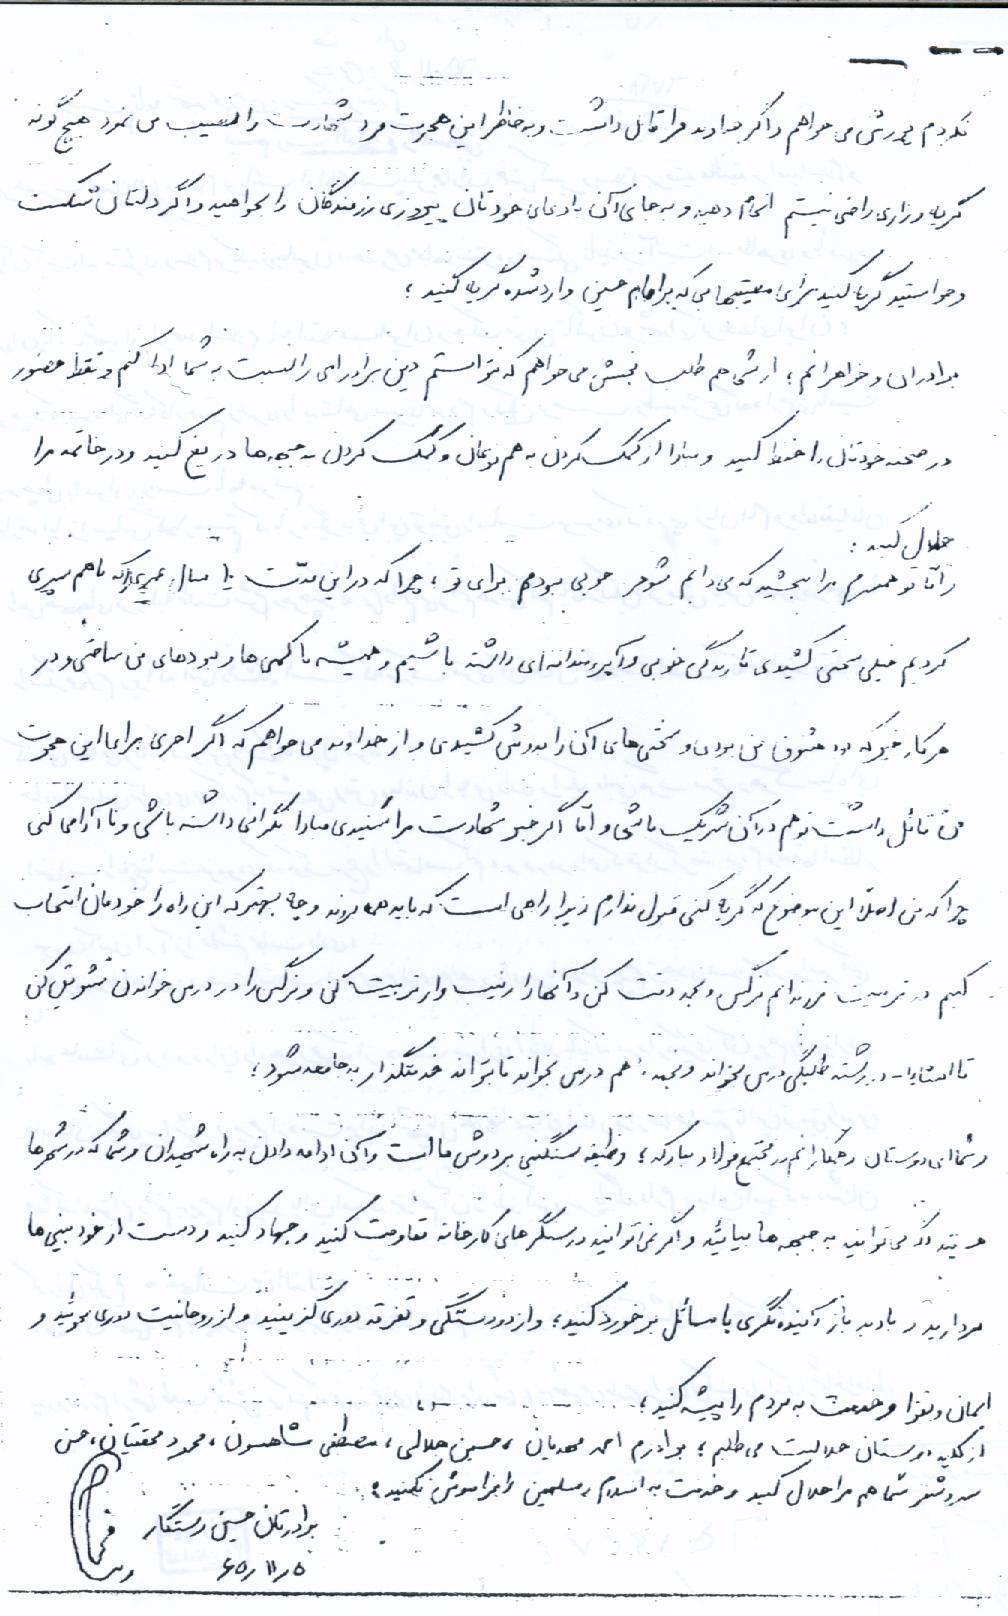 نکردم پوزش می خواهم و اگر خداوند مرا قابل دانست و به خاطر این هجرت مرد شهادت را نصیب من نمود هیچ گونه
گریه و زاری راضی نیستم انجام دهید و به جای آن با دعای خودتان پیروزی رزمندگان را بخواهید و اگر دلتان شکست
و خواستید گریه کنید برای مصیبتهایی که بر امام حسین وارد شده گریه کنید ؛
برادران و خواهرانم ؛ از شما هم طلب بخشش می خواهم که نتوانستم دین برادرای را نسبت به شما ادا کنم و فقط حضور
در صحنه خودتان را حفظ کنید و مبادا از کمک کردن به هم نوعان و کمک کردن به جبهه ها دریغ کنید و در خاتمه مرا
حلال کنید :
و اما تو همسرم مرا ببخشید که می دانم شوهر خوبی نبودم برای تو ؛ چرا که در این مدت سال عمری را که با هم سپری
کردیم خیلی سختی کشیدی تا زندگی خوبی و آبرومندانه ای داشته باشیم و همیشه با کمی ها و نبودهای من ساختی و در
هر کار خیر که بود مشوق من بودی و سختی های آن را بدوش کشیدی و از خداوند می خواهم که اگر اجری برای این هجرت
من قائل داشت تو هم در آن شریک باشی و اما اگر خبر شهادت مرا شنیدی مبادا نگرانی داشته باشی و نا آرامی کنی
چرا که من اصلاً این موضوع که گریه کنی قبول ندارم زیرا راهی است که باید همه بروند و چه بهتر که این راه را خودمان انتخاب
کنیم در تربیت فرزندانم نرگس و نجمه دقت کن و آنها را زینب وار تربیت کن و نرگس را در درس خواندن تشویق کن
تا انشاءا... در رشته طلبگی درس بخواند و نجمه هم درس بخواند تا بتواند خدمتگذار به جامعه شود ؛
و شما ای دوستان و همکارانم در مجتمع فولاد مبارکه ؛ وظیفه سنگینی بر دوش ما است و آن ادامه دادن به راه شهیدان و شما که در شهرها
هستید اگر می توانید به جبهه ها بیائید و اگر نمی توانید در سنگرهای کارخانه مقاومت کنید و جهاد کنید و دست از خود بینی ها
بردارید و با دید باز و آینده نگری با مسائل برخورد کنید ؛ و از دو دستگی و تفرقه دوری گزینید و از روحانیت دوری نجوئید و
ایمان و تقوا و خدمت به مردم را پیشه کنید ؛
از کلیه دوستان حلالیت می طلبم ؛ برادرم احمد مهدیان ، حسین هلالی ، مصطفی شاهسون ، محمود محققیان ، حسن
شما هم مرا حلال کنید و خدمت به اسلام و مسلمین را فراموش نکنید ؛
برادرتان حسین رستگار
۶۵/۱۱/۵